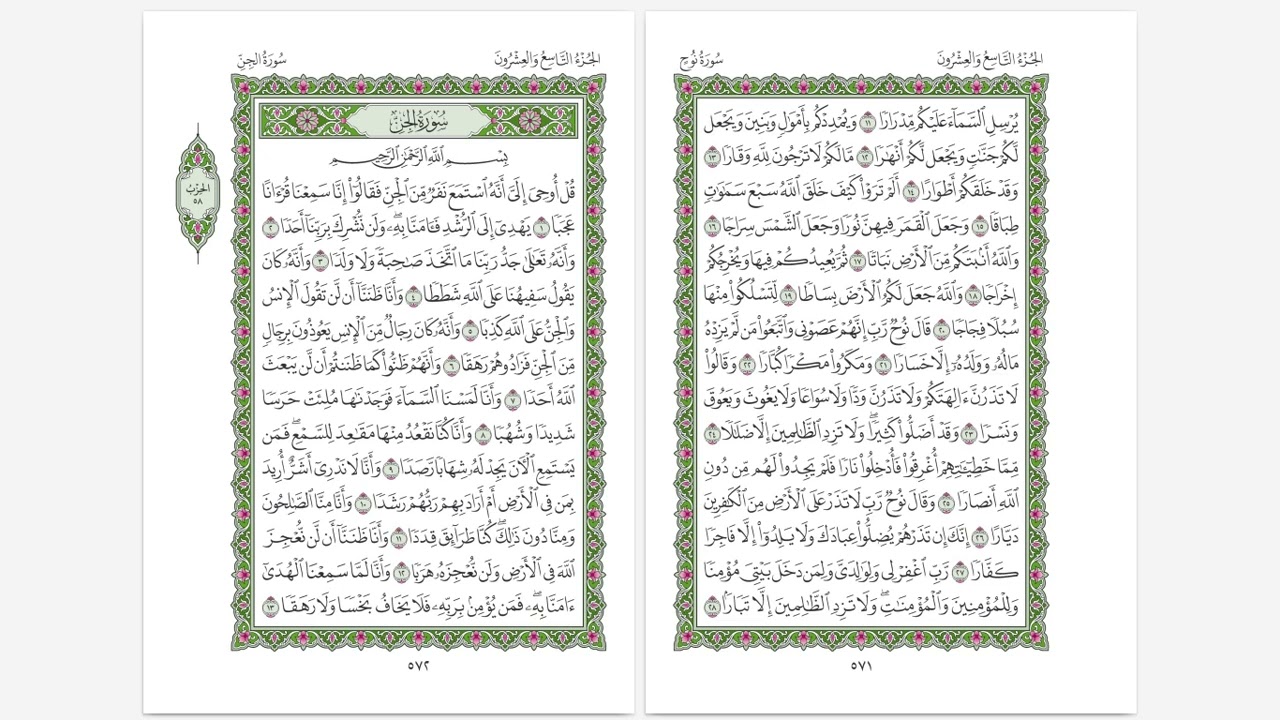 الجُزْءُ التَّاسِعُ وَالعِشْرُونَ
سُورَةُ نُوحٍ
يُرْسِلِ ٱلسَّمَآءَ عَلَيْكُم مِّدْرَارًا ١١ وَيُمْدِدْكُم بِأَمْوَٰلٍ وَبَنِينَ وَيَجْعَل
لَّكُمْ جَنَّٰتٍ وَيَجْعَل لَّكُمْ أَنْهَٰرًا ١٢ مَّا لَكُمْ لَا تَرْجُونَ لِلَّهِ وَقَارًا ١٣
وَقَدْ خَلَقَكُمْ أَطْوَارًا ١٤ أَلَمْ تَرَوْا۟ كَيْفَ خَلَقَ ٱللَّهُ سَبْعَ سَمَٰوَٰتٍ
طِبَاقًا ١٥ وَجَعَلَ ٱلْقَمَرَ فِيهِنَّ نُورًا وَجَعَلَ ٱلشَّمْسَ سِرَاجًا ١٦
وَٱللَّهُ أَنۢبَتَكُم مِّنَ ٱلْأَرْضِ نَبَاتًا ١٧ ثُمَّ يُعِيدُكُمْ فِيهَا وَيُخْرِجُكُمْ
إِخْرَاجًا ١٨ وَٱللَّهُ جَعَلَ لَكُمُ ٱلْأَرْضَ بِسَاطًا ١٩ لِّتَسْلُكُوا۟ مِنْهَا
سُبُلًا فِجَاجًا ٢٠ قَالَ نُوحٌ رَّبِّ إِنَّهُمْ عَصَوْنِى وَٱتَّبَعُوا۟ مَن لَّمْ يَزِدْهُ
مَالُهُۥ وَوَلَدُهُۥٓ إِلَّا خَسَارًا ٢١ وَمَكَرُوا۟ مَكْرًا كُبَّارًا ٢٢ وَقَالُوا۟
لَا تَذَرُنَّ ءَالِهَتَكُمْ وَلَا تَذَرُنَّ وَدًّا وَلَا سُوَاعًا وَلَا يَغُوثَ وَيَعُوقَ
وَنَسْرًا ٢٣ وَقَدْ أَضَلُّوا۟ كَثِيرًا ۖ وَلَا تَزِدِ ٱلظَّٰلِمِينَ إِلَّا ضَلَٰلًا ٢٤
مِّمَّا خَطِيٓـَٰٔتِهِمْ أُغْرِقُوا۟ فَأُدْخِلُوا۟ نَارًا فَلَمْ يَجِدُوا۟ لَهُم مِّن دُونِ
ٱللَّهِ أَنصَارًا ٢٥ وَقَالَ نُوحٌ رَّبِّ لَا تَذَرْ عَلَى ٱلْأَرْضِ مِنَ ٱلْكَٰفِرِينَ
دَيَّارًا ٢٦ إِنَّكَ إِن تَذَرْهُمْ يُضِلُّوا۟ عِبَادَكَ وَلَا يَلِدُوٓا۟ إِلَّا فَاجِرًا
كَفَّارًا ٢٧ رَّبِّ ٱغْفِرْ لِى وَلِوَٰلِدَىَّ وَلِمَن دَخَلَ بَيْتِىَ مُؤْمِنًا
وَلِلْمُؤْمِنِينَ وَٱلْمُؤْمِنَٰتِ ۖ وَلَا تَزِدِ ٱلظَّٰلِمِينَ إِلَّا تَبَارًۢا ٢٨
٥٧١
الجُزْءُ التَّاسِعُ وَالعِشْرُونَ
سُورَةُ الجِنِّ
سُورَةُ الجِنِّ
بِسْمِ ٱللَّهِ ٱلرَّحْمَٰنِ ٱلرَّحِيمِ
قُلْ أُوحِىَ إِلَىَّ أَنَّهُ ٱسْتَمَعَ نَفَرٌ مِّنَ ٱلْجِنِّ فَقَالُوٓا۟ إِنَّا سَمِعْنَا قُرْءَانًا
عَجَبًا ١ يَهْدِىٓ إِلَى ٱلرُّشْدِ فَـَٔامَنَّا بِهِۦ ۖ وَلَن نُّشْرِكَ بِرَبِّنَآ أَحَدًا ٢
وَأَنَّهُۥ تَعَٰلَىٰ جَدُّ رَبِّنَا مَا ٱتَّخَذَ صَٰحِبَةً وَلَا وَلَدًا ٣ وَأَنَّهُۥ كَانَ
يَقُولُ سَفِيهُنَا عَلَى ٱللَّهِ شَطَطًا ٤ وَأَنَّا ظَنَنَّآ أَن لَّن تَقُولَ ٱلْإِنسُ
وَٱلْجِنُّ عَلَى ٱللَّهِ كَذِبًا ٥ وَأَنَّهُۥ كَانَ رِجَالٌ مِّنَ ٱلْإِنسِ يَعُوذُونَ بِرِجَالٍ
مِّنَ ٱلْجِنِّ فَزَادُوهُمْ رَهَقًا ٦ وَأَنَّهُمْ ظَنُّوا۟ كَمَا ظَنَنتُمْ أَن لَّن يَبْعَثَ
ٱللَّهُ أَحَدًا ٧ وَأَنَّا لَمَسْنَا ٱلسَّمَآءَ فَوَجَدْنَٰهَا مُلِئَتْ حَرَسًا
شَدِيدًا وَشُهُبًا ٨ وَأَنَّا كُنَّا نَقْعُدُ مِنْهَا مَقَٰعِدَ لِلسَّمْعِ ۖ فَمَن
يَسْتَمِعِ ٱلْـَٔانَ يَجِدْ لَهُۥ شِهَابًا رَّصَدًا ٩ وَأَنَّا لَا نَدْرِىٓ أَشَرٌّ أُرِيدَ
بِمَن فِى ٱلْأَرْضِ أَمْ أَرَادَ بِهِمْ رَبُّهُمْ رَشَدًا ١٠ وَأَنَّا مِنَّا ٱلصَّٰلِحُونَ
وَمِنَّا دُونَ ذَٰلِكَ ۖ كُنَّا طَرَآئِقَ قِدَدًا ١١ وَأَنَّا ظَنَنَّآ أَن لَّن نُّعْجِزَ
ٱللَّهَ فِى ٱلْأَرْضِ وَلَن نُّعْجِزَهُۥ هَرَبًا ١٢ وَأَنَّا لَمَّا سَمِعْنَا ٱلْهُدَىٰٓ
ءَامَنَّا بِهِۦ ۖ فَمَن يُؤْمِنۢ بِرَبِّهِۦ فَلَا يَخَافُ بَخْسًا وَلَا رَهَقًا ١٣
الحِزْبُ
٥٨
٥٧٢